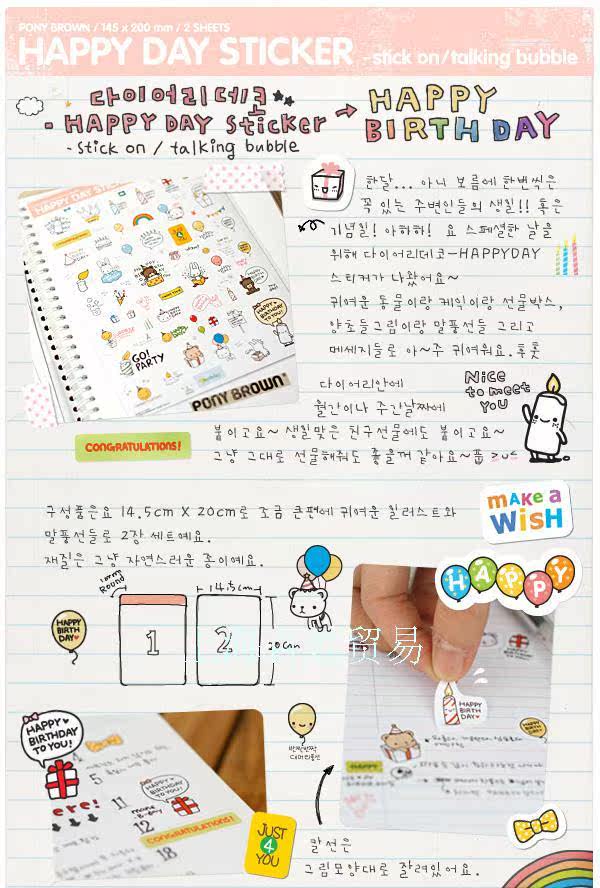 PONY BROWN / 145 x 200 mm / 2 SHEETS
HAPPY DAY STICKER
stick on / talking bubble
다이어리데코
- HAPPY DAY Sticker
- stick on / talking bubble
HAPPY
BIRTH DAY
HAPPY DAY STICKER
GO!
PARTY
HAPPY
BIRTHDAY
TO YOU!
PONY BROWN
한달... 아니 보름에 한번씩은
꼭 있는 주변인들의 생일!! 혹은
기념일! 아하하! 요 스페셜한 날을
위해 다이어리데코-HAPPYDAY
스티커가 나왔어요~
귀여운 동물이랑 케익이랑 선물박스,
양초들그림이랑 말풍선들 그리고
메세지들로 아~주 귀여워요. 훗훗
다이어리안에
월간이나 주간날짜에
붙이고요~ 생일맞은 친구선물에도 붙이고요~
그냥 그대로 선물해줘도 좋을꺼 같아요~풉 >ㅅ<
Nice
to meet
YOU
CONGRATULATIONS!
구성품은요 14.5cm X 20cm로 조금 큰편에 귀여운 일러스트와
말풍선들로 2장 세트예요.
재질은 그냥 자연스러운 종이예요.
MAKE a
WiSH
HAPPY
10mm
Round
14.5cm
1
2
20cm
HAPPY
BIRTH
DAY
贸易
HAPPY
BIRTH
DAY
HAPPY
HAPPY
BIRTHDAY
TO YOU!
4
5
11
12
18
here!
HAPPY
BIRTHDAY
TO YOU!
CONGRATULATIONS!
반짝반짝
대머리풍선
JUST
4
YOU
칼선은
그림모양대로 잘려있어요.